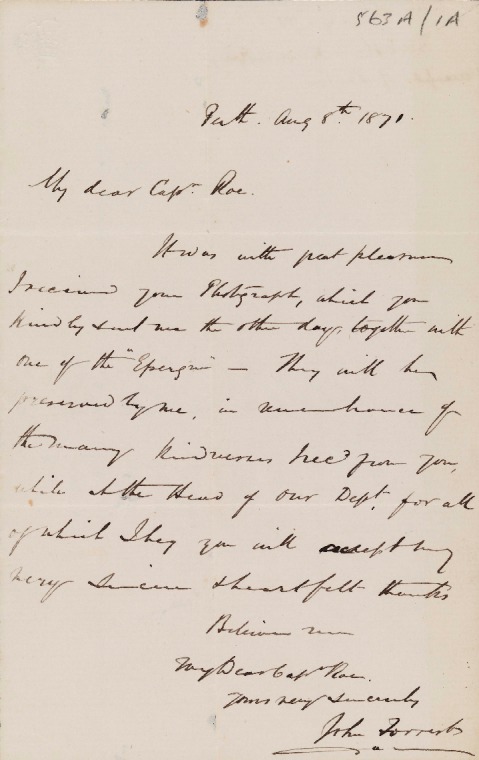 563A/1A
Perth. Aug 8th. 1871.
My dear Capn. Roe.
It was with great pleasure
I received your Photograph, which you
kindly sent me the other day, together with
one of the "Epergne" — They will be
preserved by me, in remembrance of
the many kindnesses I recd from you,
while at the Head of our Dept, for all
of which I beg you will accept my
very sincere & heartfelt thanks
Believe me
My Dear Capn Roe.
Yours very sincerely
John Forrest